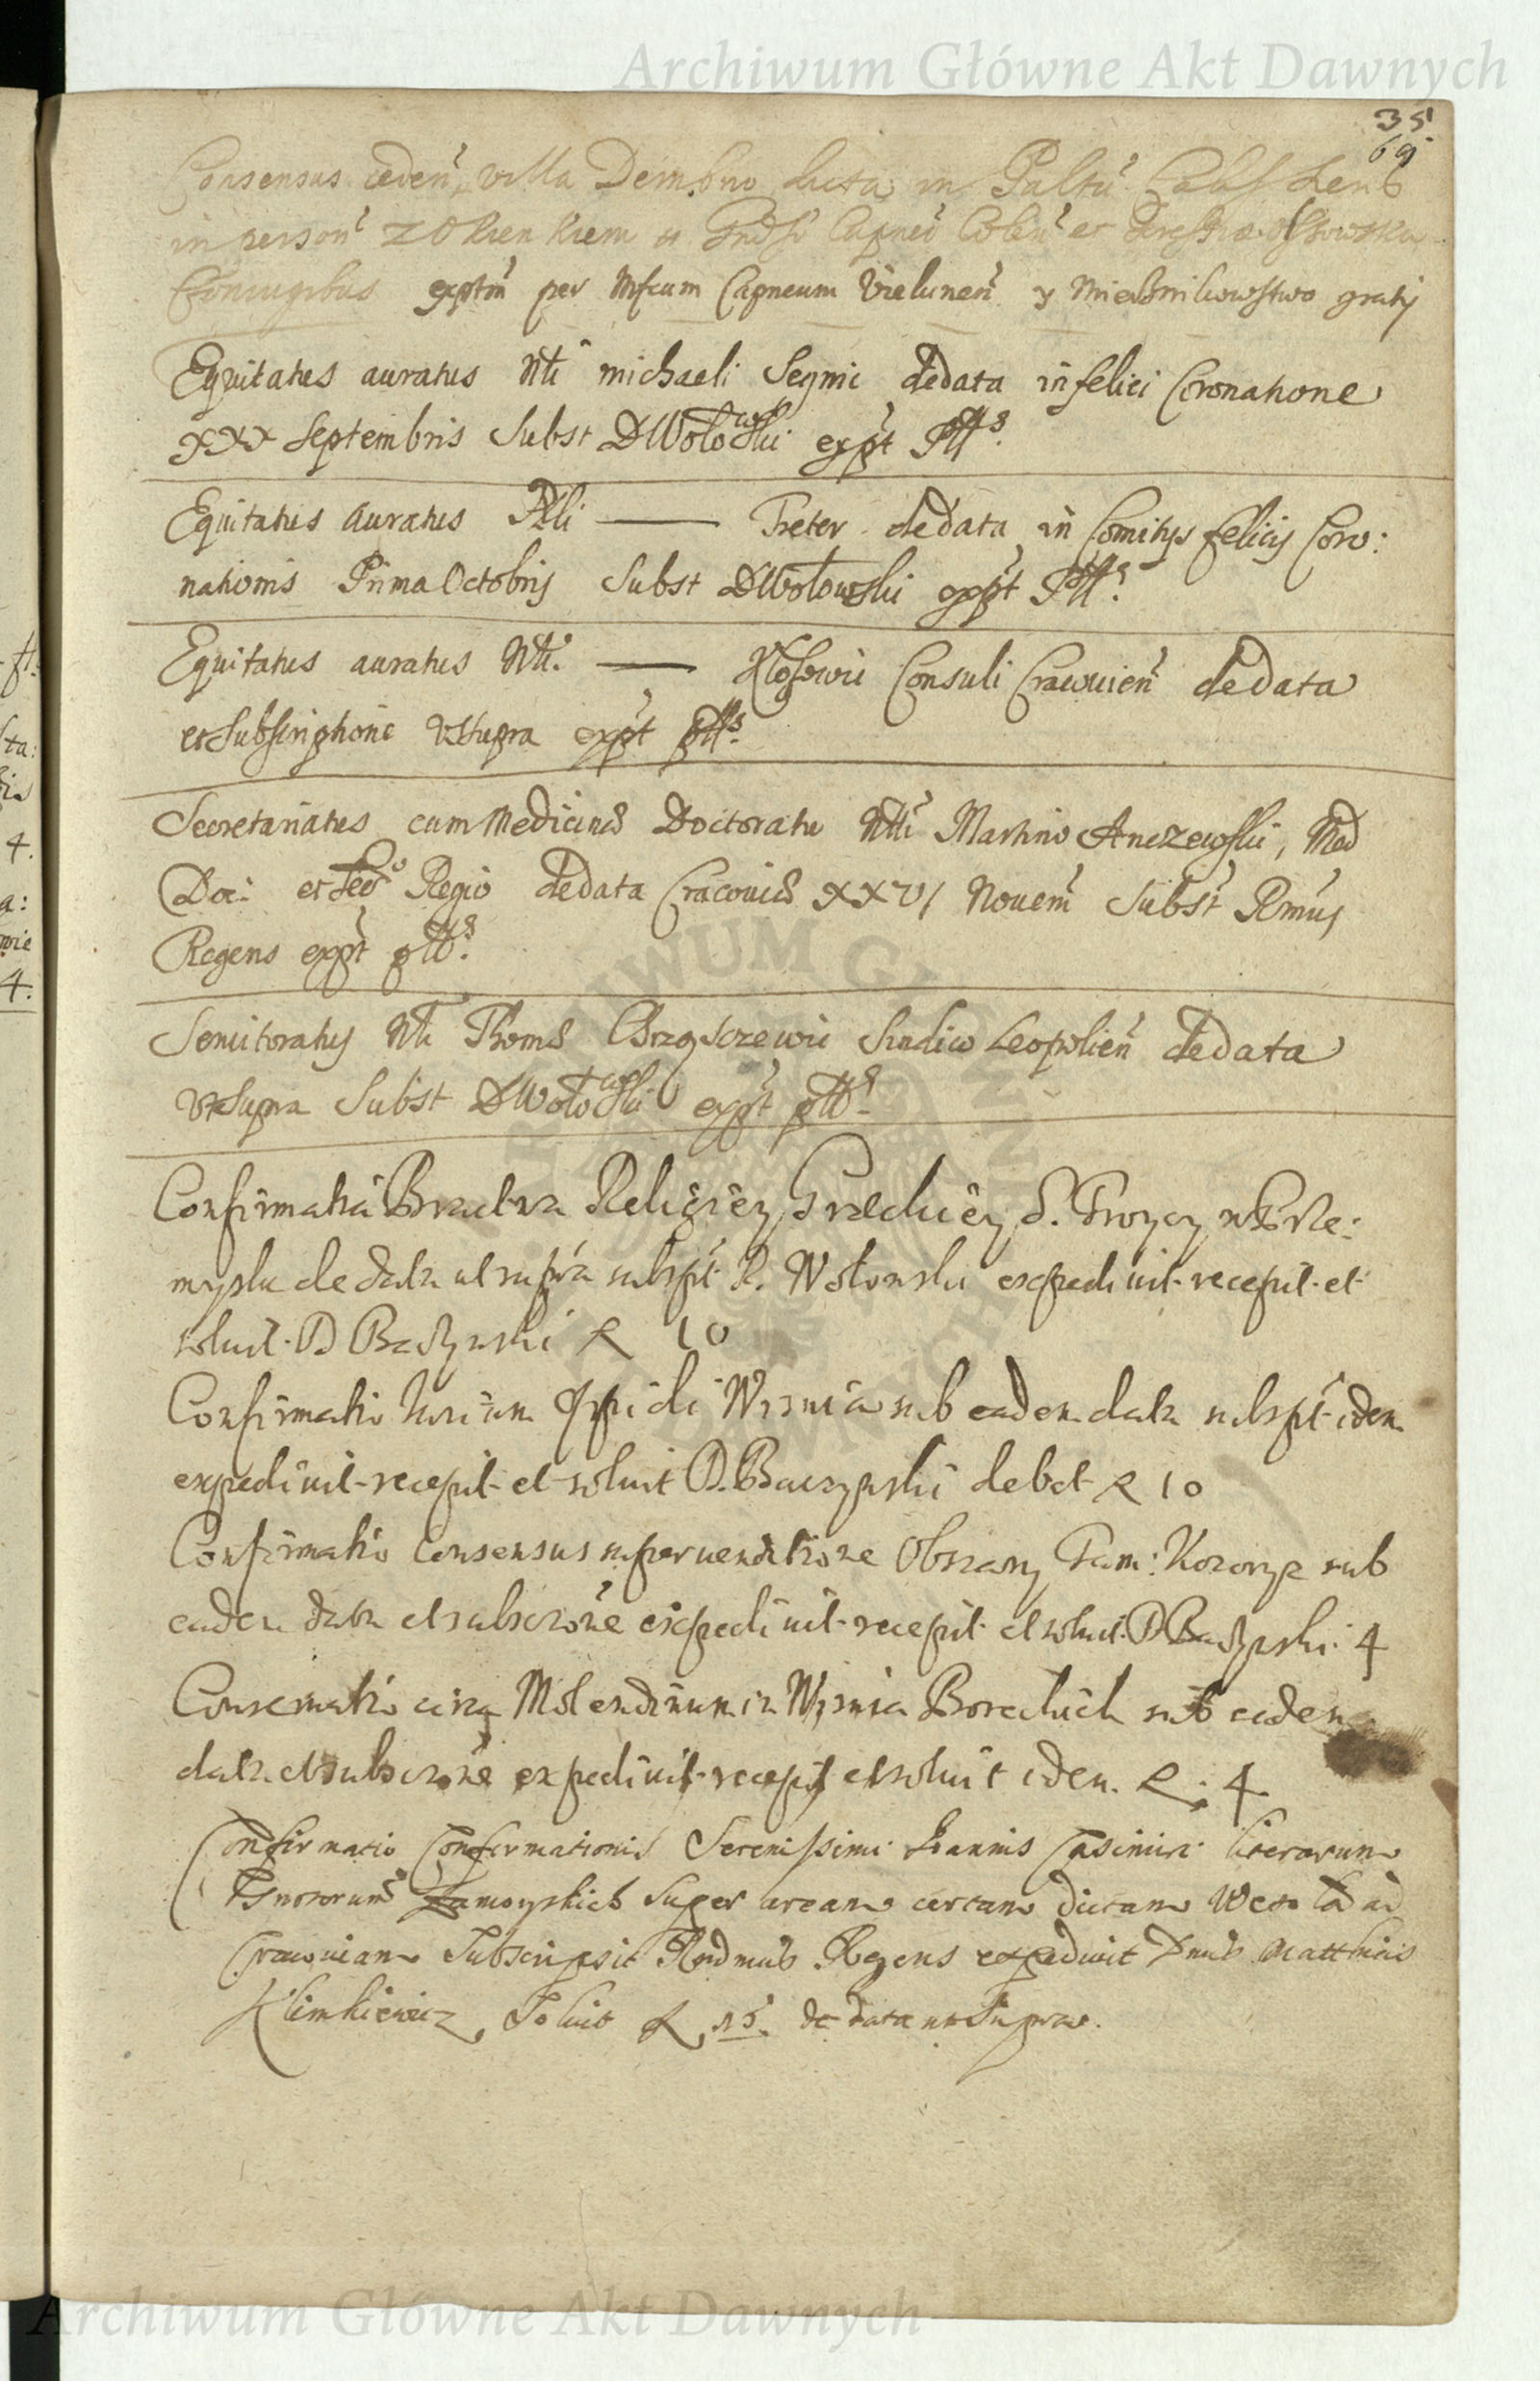 Archiwum Główne Akt Dawnych
35
69
Consensus cedeñ villa Dembno in
in person
Coniugibus per Mfcum Capneum Vielunen y gratis
Equitatus auratus Nli michaeli Segnic dedata in felici Coronatione
XXX Septembris Subst D Wołowski expt
Equitatus Auratus Nli —— Treter dedata in Comitys felicis Coro:
nationis Prima Octobris Subst D Wołowski expt
Equitatus auratus Nli —— Consuli Cracovien dedata
et Subscriptione Vtsupra expt
Secretariatus cum Medicinæ Doctoratu Nli Martino Anczewski, Med
Doc: et Secr Regio dedata Cracoviæ XXVI Novem Subst Rmus
Regens expt
Servitoratus Nli Thomæ Sindico Leopolien dedata
Vtsupra Subst D Wołowski expt
Confirmatia Bractwa Religiey Græckiey S. Troycy w Prze:
myslu de data ut supra subspt R. Wołowski expediuit recepit et
soluit D Baczynski R 10
Confirmatio Iurium Oppidi Wisnia sub eadem data subspt idem
expediuit recepit et soluit D. Baczynski debet R 10
Confirmatio Consensus super venditione Obszary Fam: sub
eadem data et subscrone expediuit recepit et soluit D Baczynski 4
Conservatio circa Molendinum in Wisnia sub eadem
data et subscrone expediuit recepit et soluit idem. R. 4
Confirmatio Confirmationis Serenissimi Ioannis Casimiri literarum
Zamoyskich Super aream certam dictam Wesoła ad
Cracoviam Subscripsit Rndmus Regens expediuit Dnus Matthias
Klimkiewicz, Soluit R 15. de data ut Supra.
Archiwum Główne Akt Dawnych